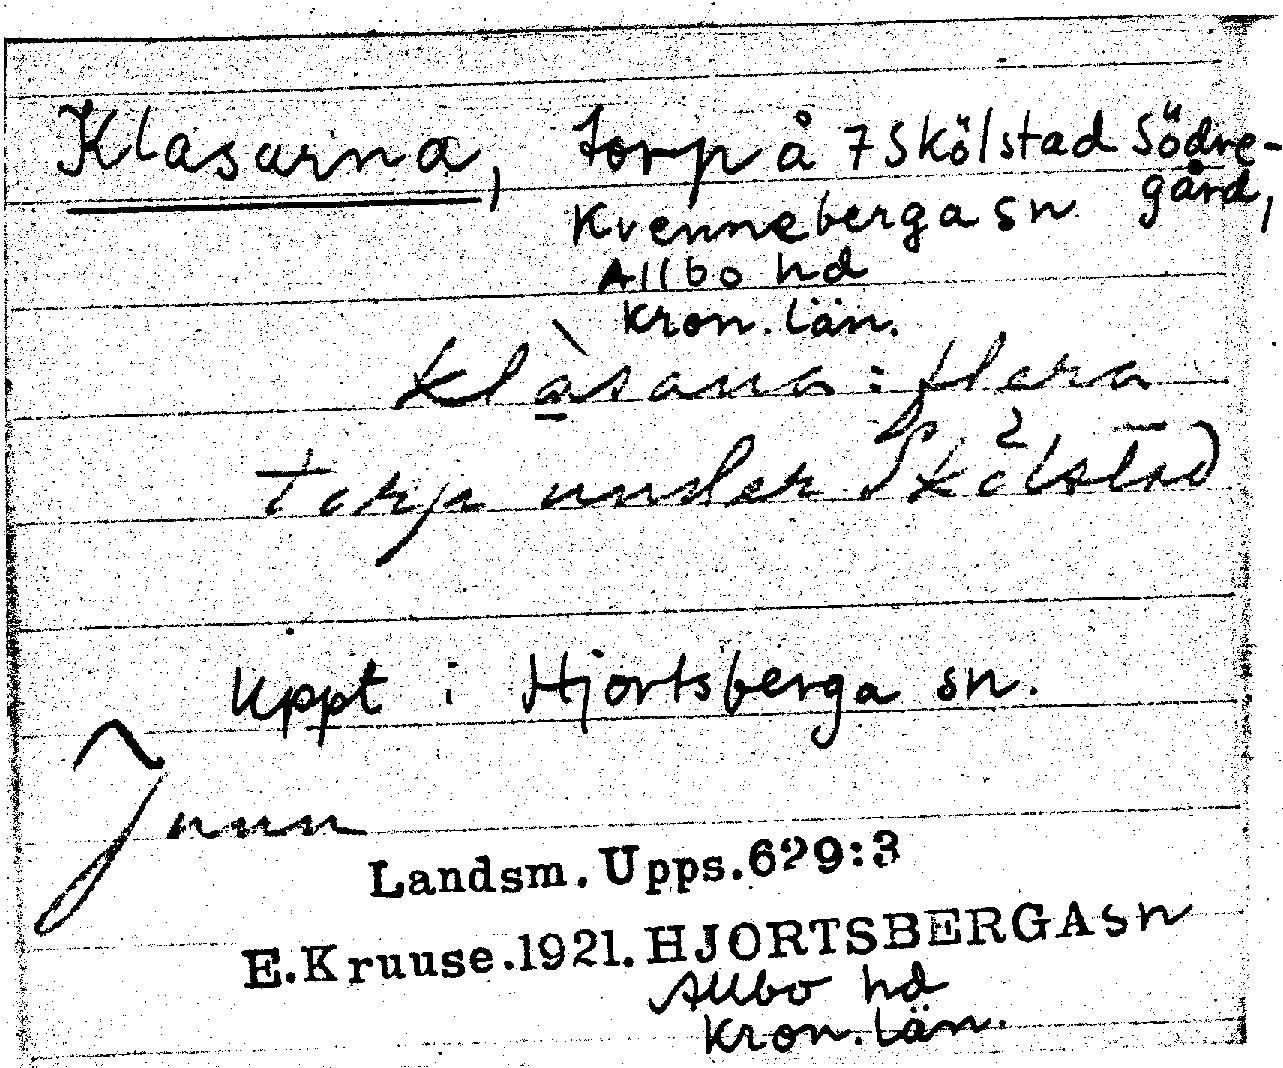 Klasarna, Torp å 7 Skölstad Södre-
gård,
Kvenneberga sn
Allbo hd
Kron. län.
klàsana: flera
torp under Skölstad
Uppt i Hjortsberga sn.
Landsm. Upps. 629:3
E. Kruuse. 1921. HJORTSBERGA sn
Allbo hd
Kron. län.